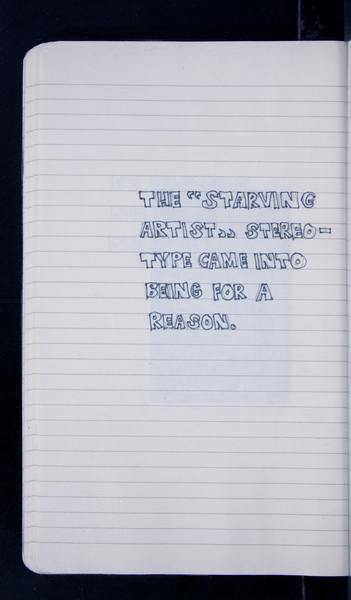 THE “STARVING
ARTIST„ STEREO-
TYPE CAME INTO
BEING FOR A
REASON.